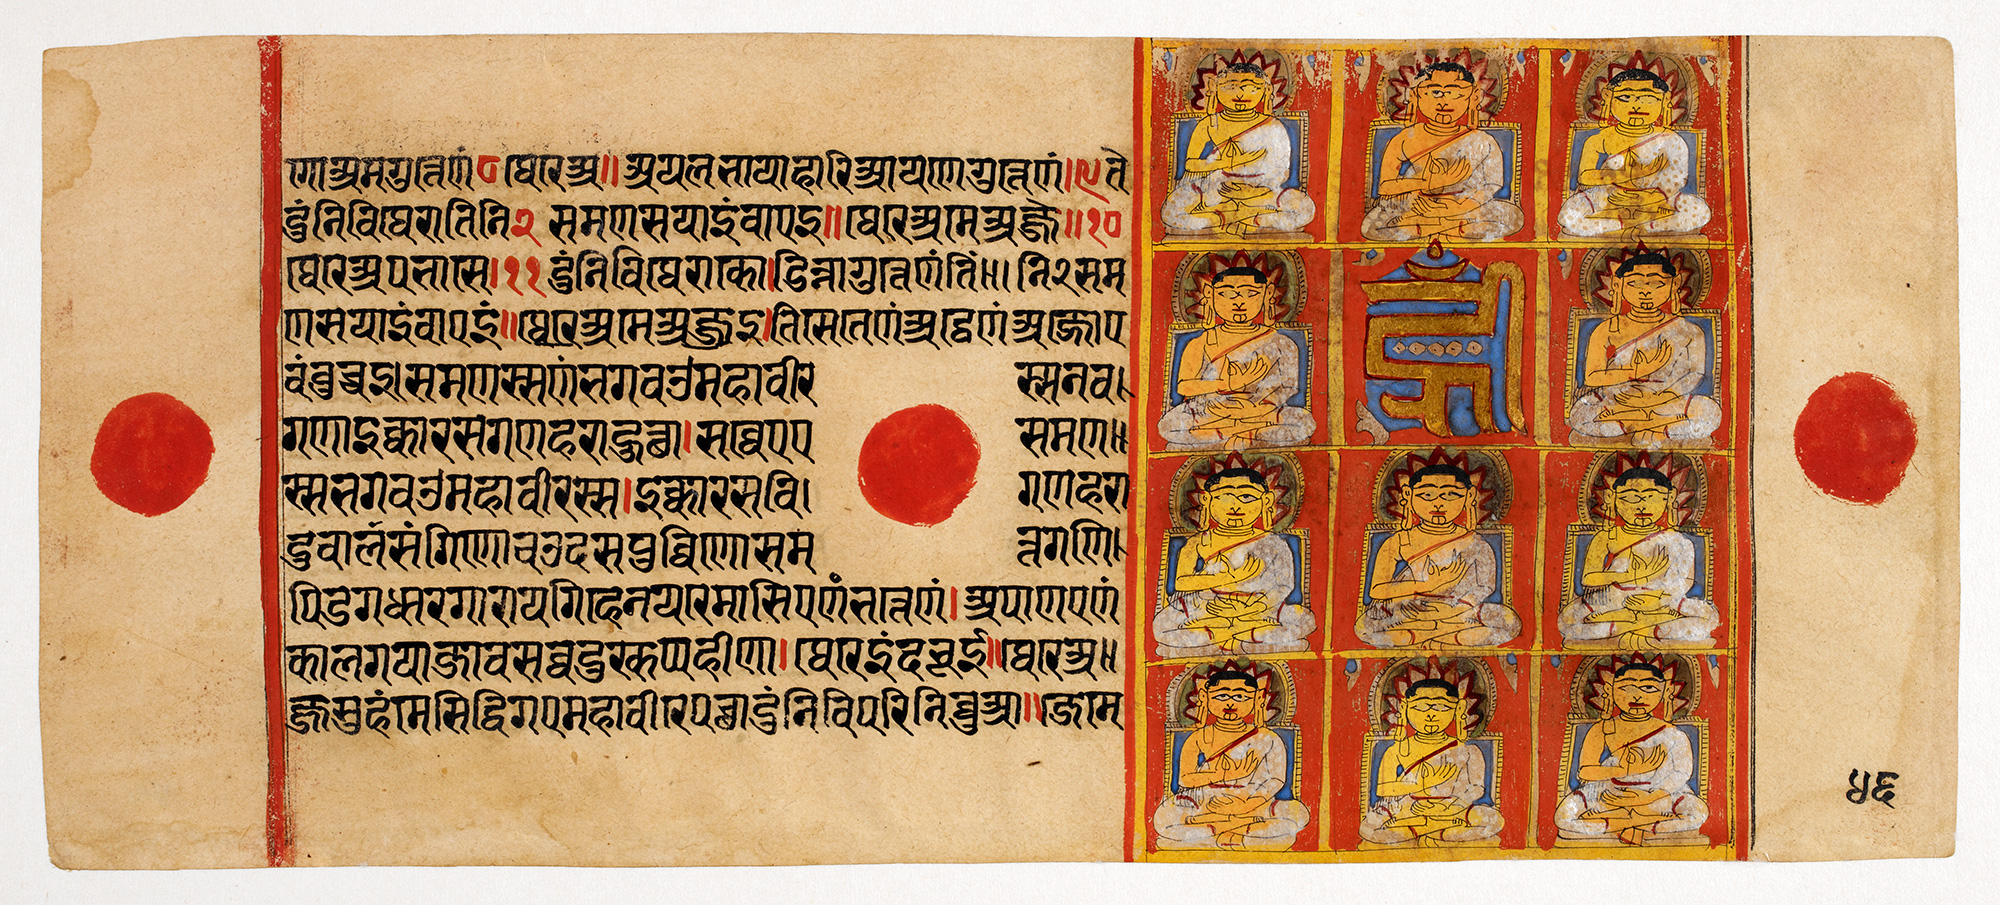 गोअमगुत्तेणं ८ थेरे अ॥ अयलभाया हारिआयणे गुत्तेणं।९ ते
दुंनि वि थेरा तिनि २ समणसयाइं वाएइ॥ थेरे अ मेअज्जे॥१०
थेरे अ पभासे।११ दुंनि वि थेरा कोडिन्ना गुत्तेणं तिं॥। नि२सम
णसयाइं वाएइं॥ थेरे अ मेअज्जइ।से तेणं अट्ठेणं अज्जो ए
वं वुच्चइ। समणस्सणं भगवउ महावीर स्स नव।
गणा इक्कारस गणहरा हुत्था। सव्वे एए समण॥
स्स भगवउ महावीरस्स। इक्कारस वि। गणहरा
दुवालसंगिणो चउदसपुव्विणो सम त्तगणि।
पिडगधारगा रायगिहे नयरे मासिएणं भत्तेणं। अपाणएणं
कालगया जाव सव्वदुरकप्पहीणा। थेरे इंदभूई॥ थेरे अ॥
ज्जसुहंमे सिद्धिगए महावीरे पच्छा दुंनि वि परिनिव्वुआ॥ जे मे
५६